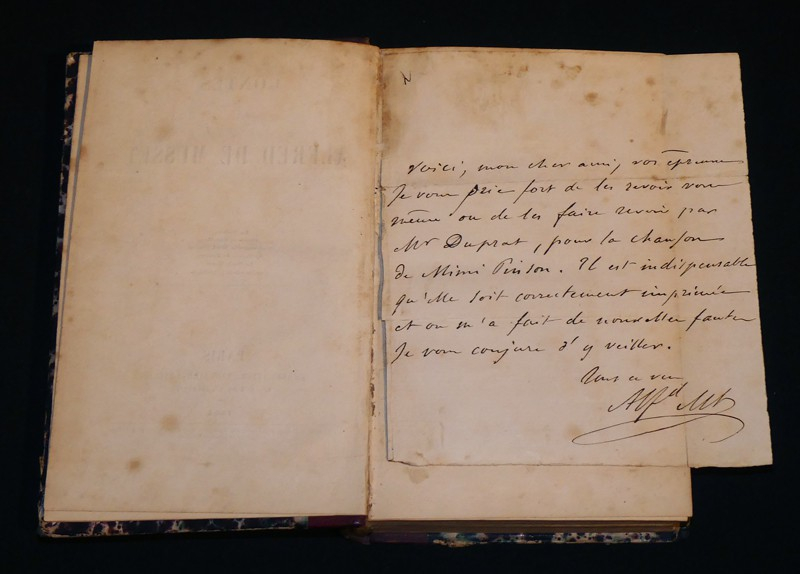 CONTES
ALFRED DE MUSSET
Voici, mon cher ami, vos épreuves
Je vous prie fort de les revoir vous
même ou de les faire revoir par
Mr Duprat, pour la chanson
de Mimi Pinson. Il est indispensable
qu'elle soit correctement imprimée
et on m'a fait de nouvelles fautes
Je vous conjure d'y veiller.
Tout à vous
Alfd Mt